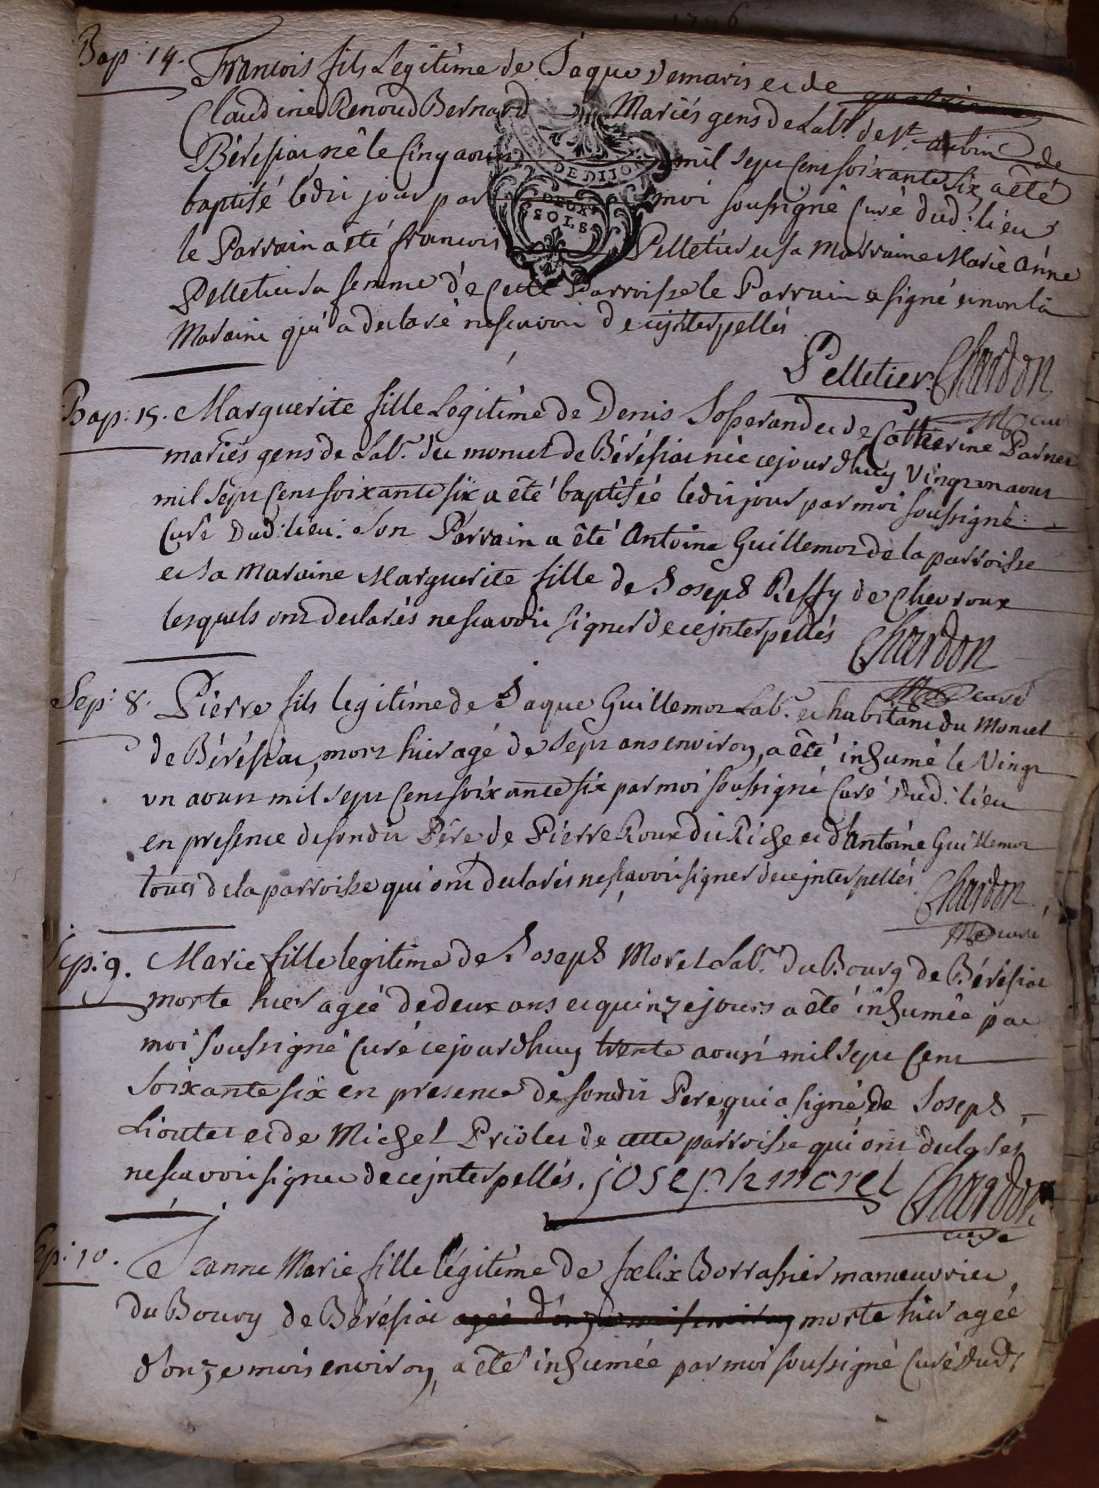 Bap: 14. François fils Legitime de Jaque Demaris et de
Claudine Renoud Bernard Mariés gens de Lab.r de St. aubin de
Béréfiat né le Cinq aout mil sept cens soixante six a êté
baptisé ledit jour par moi soussigné Curé dud: lieu
le Parrain a êté françois Pelletier et sa Marraine Marie Anne
Pelletier sa femme de Cette Parroisse le Parrain a signé et non la
Maraine qui a declaré nescavoir de ce jnterpellés
GEN. DE DIJON
DEUX
SOLS
Pelletier Chardon
curé
Bap: 15. Marguerite fille Legitime de Denis Josserand et de Catherine
mariés gens de Lab.r du moncel de Béréfiat née cejourdhuy Vingt un aout
mil sept cens soixante six a êté baptisée ledit jour par moi soussigné
Curé Dud: lieu: son Parrain a êté Antoine Guillemot de la parroisse
et sa maraine Marguerite fille de Joseph Reffy de Chevroux
lesquels ont declarés nescavoir signer de ce jnterpellés Chardon
curé
Sep: 8. Pierre fils legitime de Jaque Guillemot Lab.r et habitant du Moncel
de Béréfiat, mort hier agé de sept ans environ, a êté inhumé le Vingt
un aout mil sept Cens soixante six par moi soussigné Curé dud: lieu
en presence de sondit Pére de Pierre Roux dit Riche et d'Antoine Guillemot
tous de la parroisse qui ont declarés nescavoir signer de ce jnterpellés Chardon
curé
Sep: 9. Marie fille legitime de Joseph Morel Lab.r du Bourg de Béréfiat
morte hier agée de deux ans et quinze jours a êté inhumée par
moi soussigné Curé cejourdhuy trente aoust mil sept Cens
soixante six en presence de sondit Pere qui a signé de Joseph
Lioutet et de Michel Priolet de cette parroisse qui ont declarés
nescavoir signer de ce jnterpellés. joseph morel Chardon
curé
Sep: 10. Jeanne Marie fille légitime de foelix Borrassier maneuvrier
du Bourg de Béréfiat agée d'onze mois environ morte hier agée
d'onze mois environ, a êté inhumée par moi soussigné Curé dud: